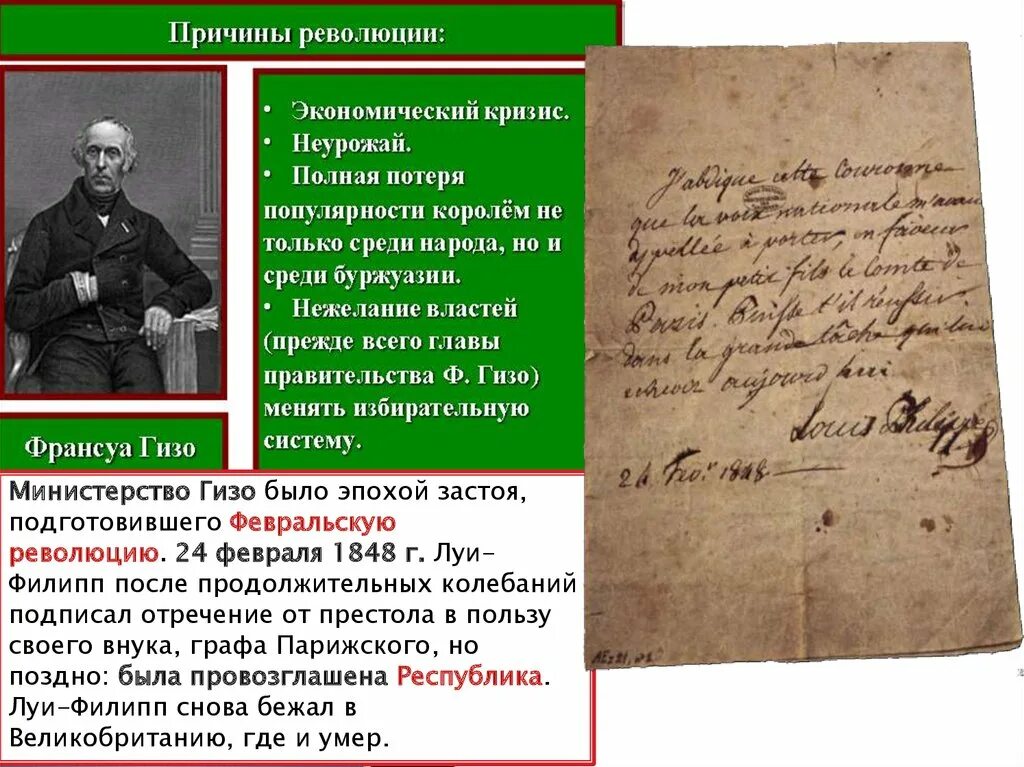 Причины революции:
• Экономический кризис.
• Неурожай.
• Полная потеря
популярности королём не
только среди народа, но и
среди буржуазии.
• Нежелание властей
(прежде всего главы
правительства Ф. Гизо)
менять избирательную
систему.
Франсуа Гизо
Министерство Гизо было эпохой застоя,
подготовившего Февральскую
революцию. 24 февраля 1848 г. Луи-
Филипп после продолжительных колебаний
подписал отречение от престола в пользу
своего внука, графа Парижского, но
поздно: была провозглашена Республика.
Луи-Филипп снова бежал в
Великобританию, где и умер.
J'abdique cette Couronne
que la voix nationale m'avait
appellée à porter, en faveur
de mon petit fils le Comte de
Paris. Puisse t'il réussir
dans la grande tâche qui lui
aujourd'hui
Louis Philippe
24 Fevr 1848